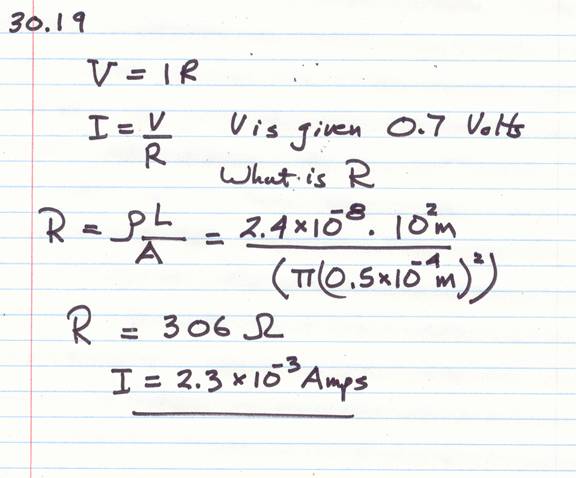 30.19
V = IR
I = V/R   V is given 0.7 Volts
What is R
R = ρL/A = 2.4×10⁻⁸ · 10²m / (π(0.5×10⁻⁴m)²)
R = 306 Ω
I = 2.3×10⁻³ Amps